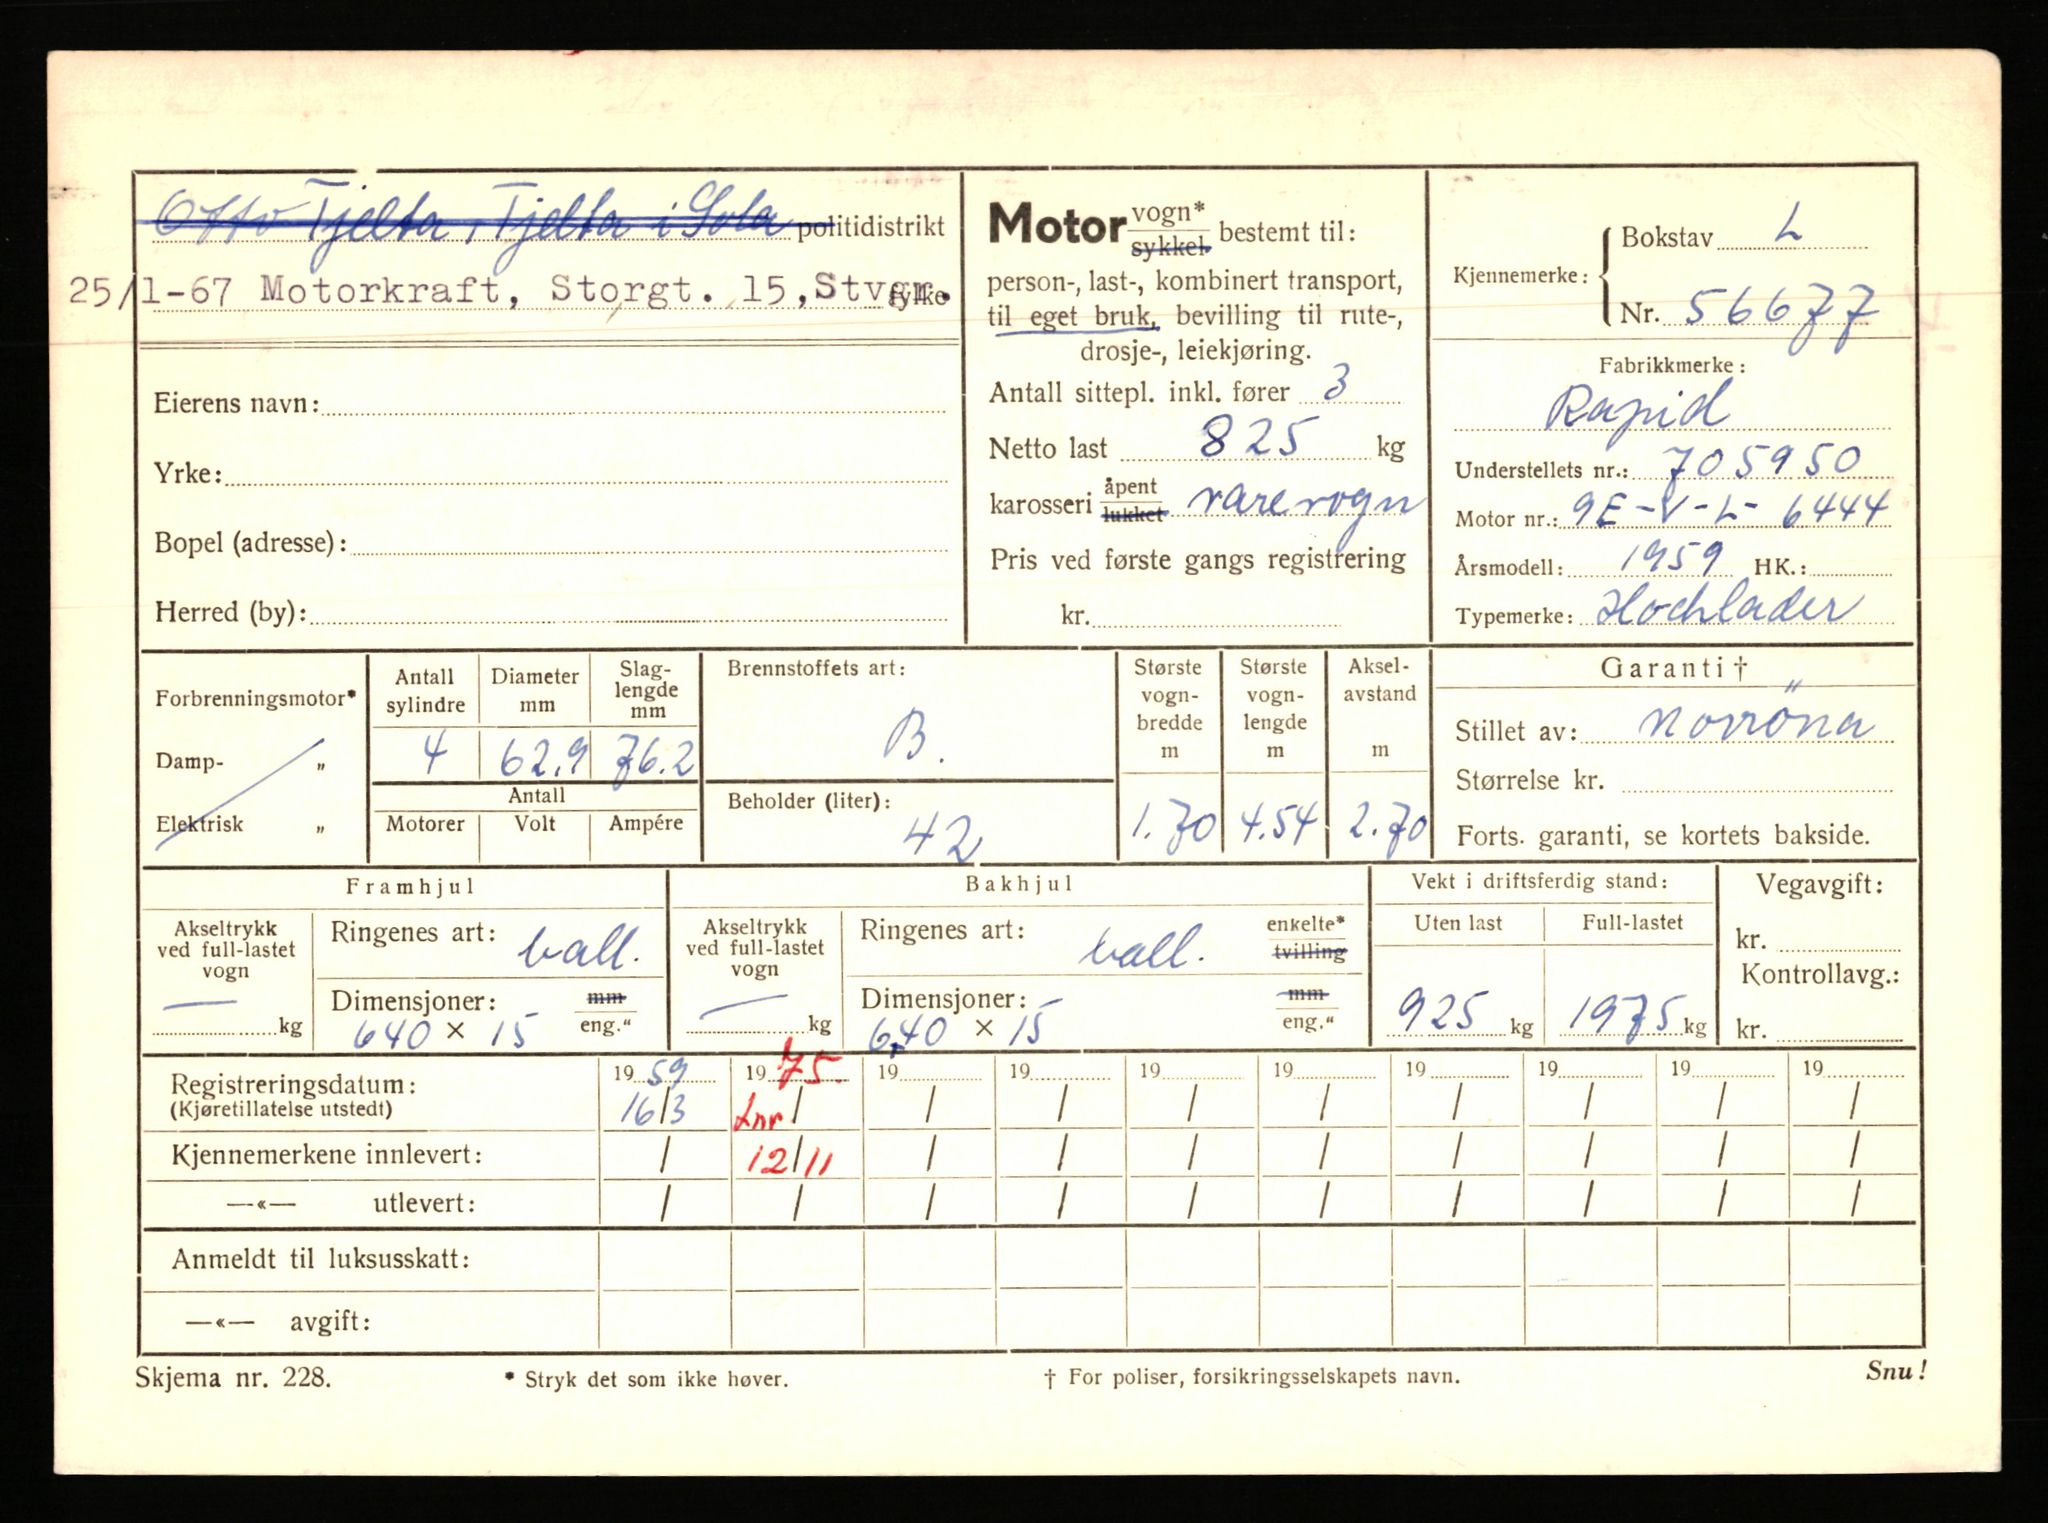 Otto Tjelta, Tjelta i Sola politidistrikt
25/1-67 Motorkraft, Storgt. 15, Stvgr. fylke
Eierens navn:
Yrke:
Bopel (adresse):
Herred (by):
Motor vogn* sykkel bestemt til:
person-, last-, kombinert transport,
til eget bruk, bevilling til rute-,
drosje-, leiekjøring.
Antall sittepl. inkl. fører 3
Netto last 825 kg
karosseri åpent lukket varevogn
Pris ved første gangs registrering
kr.
Kjennemerke: Bokstav L
Nr. 56677
Fabrikkmerke:
Rapid
Understellets nr.: 705950
Motor nr.: 9E-V-L- 6444
Årsmodell: 1959 HK.:
Typemerke: Hochlader
Forbrenningsmotor*
Damp- „
Elektrisk „
Antall sylindre
Diameter mm
Slag-lengde mm
4 62.9 76.2
Antall
Motorer Volt Ampére
Brennstoffets art:
B.
Beholder (liter):
42
Største vogn-bredde m
1.70
Største vogn-lengde m
4.54
Aksel-avstand m
2.70
Garanti †
Stillet av: Norröna
Størrelse kr.
Forts. garanti, se kortets bakside.
Framhjul
Akseltrykk ved full-lastet vogn
— kg
Ringenes art: ball.
Dimensjoner: mm eng."
640 × 15
Bakhjul
Akseltrykk ved full-lastet vogn
— kg
Ringenes art: ball. enkelte* tvilling
Dimensjoner: mm eng."
6,40 × 15
Vekt i driftsferdig stand:
Uten last Full-lastet
925 kg 1975 kg
Vegavgift:
kr.
Kontrollavg.:
kr.
Registreringsdatum: 19 59 19 75. 19 19 19 19 19 19 19 19
(Kjøretillatelse utstedt) 16/3 Lnr / / / / / / / / /
Kjennemerkene innlevert: / 12/11 / / / / / / / /
—«— utlevert: / / / / / / / / / /
Anmeldt til luksusskatt:
—«— avgift:
Skjema nr. 228. * Stryk det som ikke høver. † For poliser, forsikringsselskapets navn. Snu!